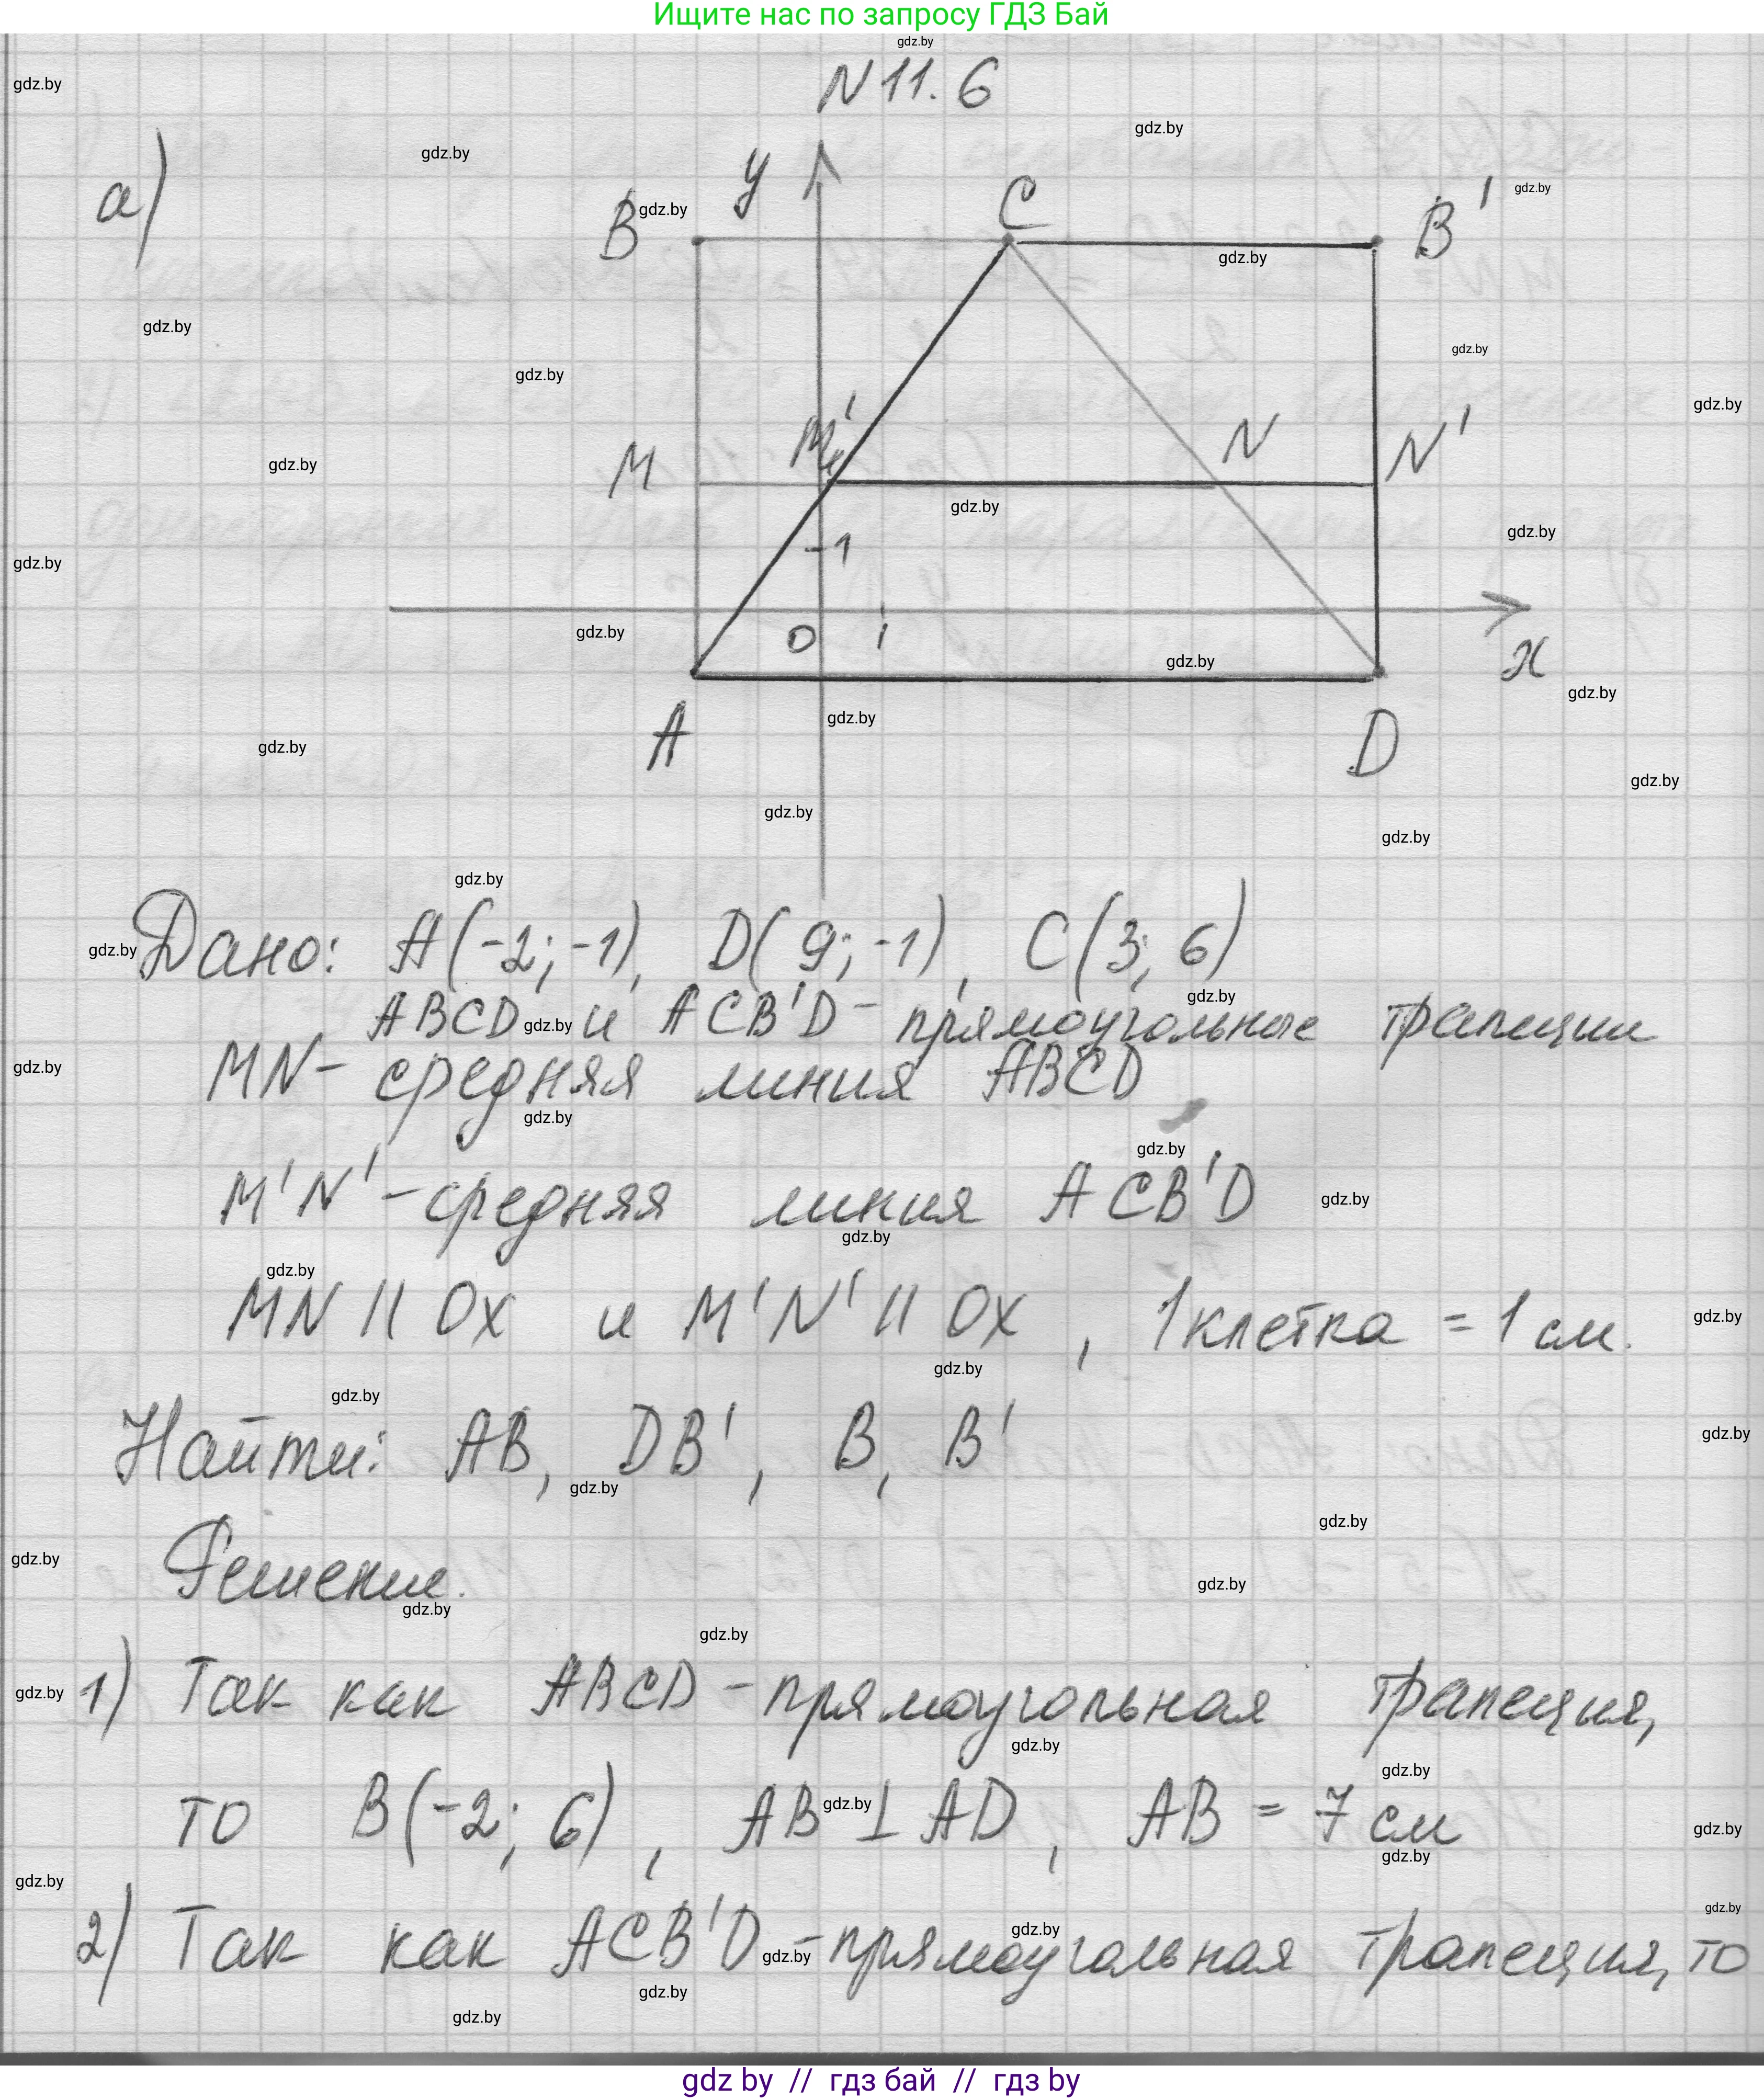 Ищите нас по запросу ГДЗ Бай
gdz.by
N 11. 6
а)
y
B
C
B'
M
M'
N
N'
1
0
1
x
A
D
Дано: A(-2; -1), D(9; -1), C(3; 6)
ABCD и ACB'D - прямоугольные трапеции
MN - средняя линия ABCD
M'N' - средняя линия ACB'D
MN || Ox и M'N' || Ox, 1 клетка = 1 см.
Найти: AB, DB', B, B'
Решение.
1) Так как ABCD - прямоугольная трапеция,
то B(-2; 6), AB ⊥ AD, AB = 7 см
2) Так как ACB'D - прямоугольная трапеция, то
gdz by // гдз бай // гдз by